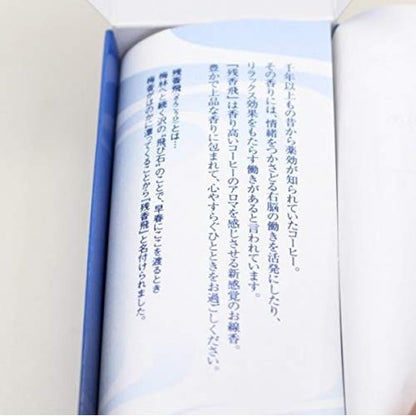 千年以上もの昔から薬効が知られていたコーヒー。
その香りには、情緒をつかさどる右脳の働きを活発にしたり、
リラックス効果をもたらす働きがあると言われています。
『残香飛』は香り高いコーヒーのアロマを感じさせる新感覚のお線香。
豊かで上品な香りに包まれて、心やすらぐひとときをお過ごしください。
残香飛(ざんこうひ)とは…
梅林へと続く沢の“飛び石”のことで、早春にここを渡るとき
梅香がほのかに漂ってくることから『残香飛』と名付けられました。